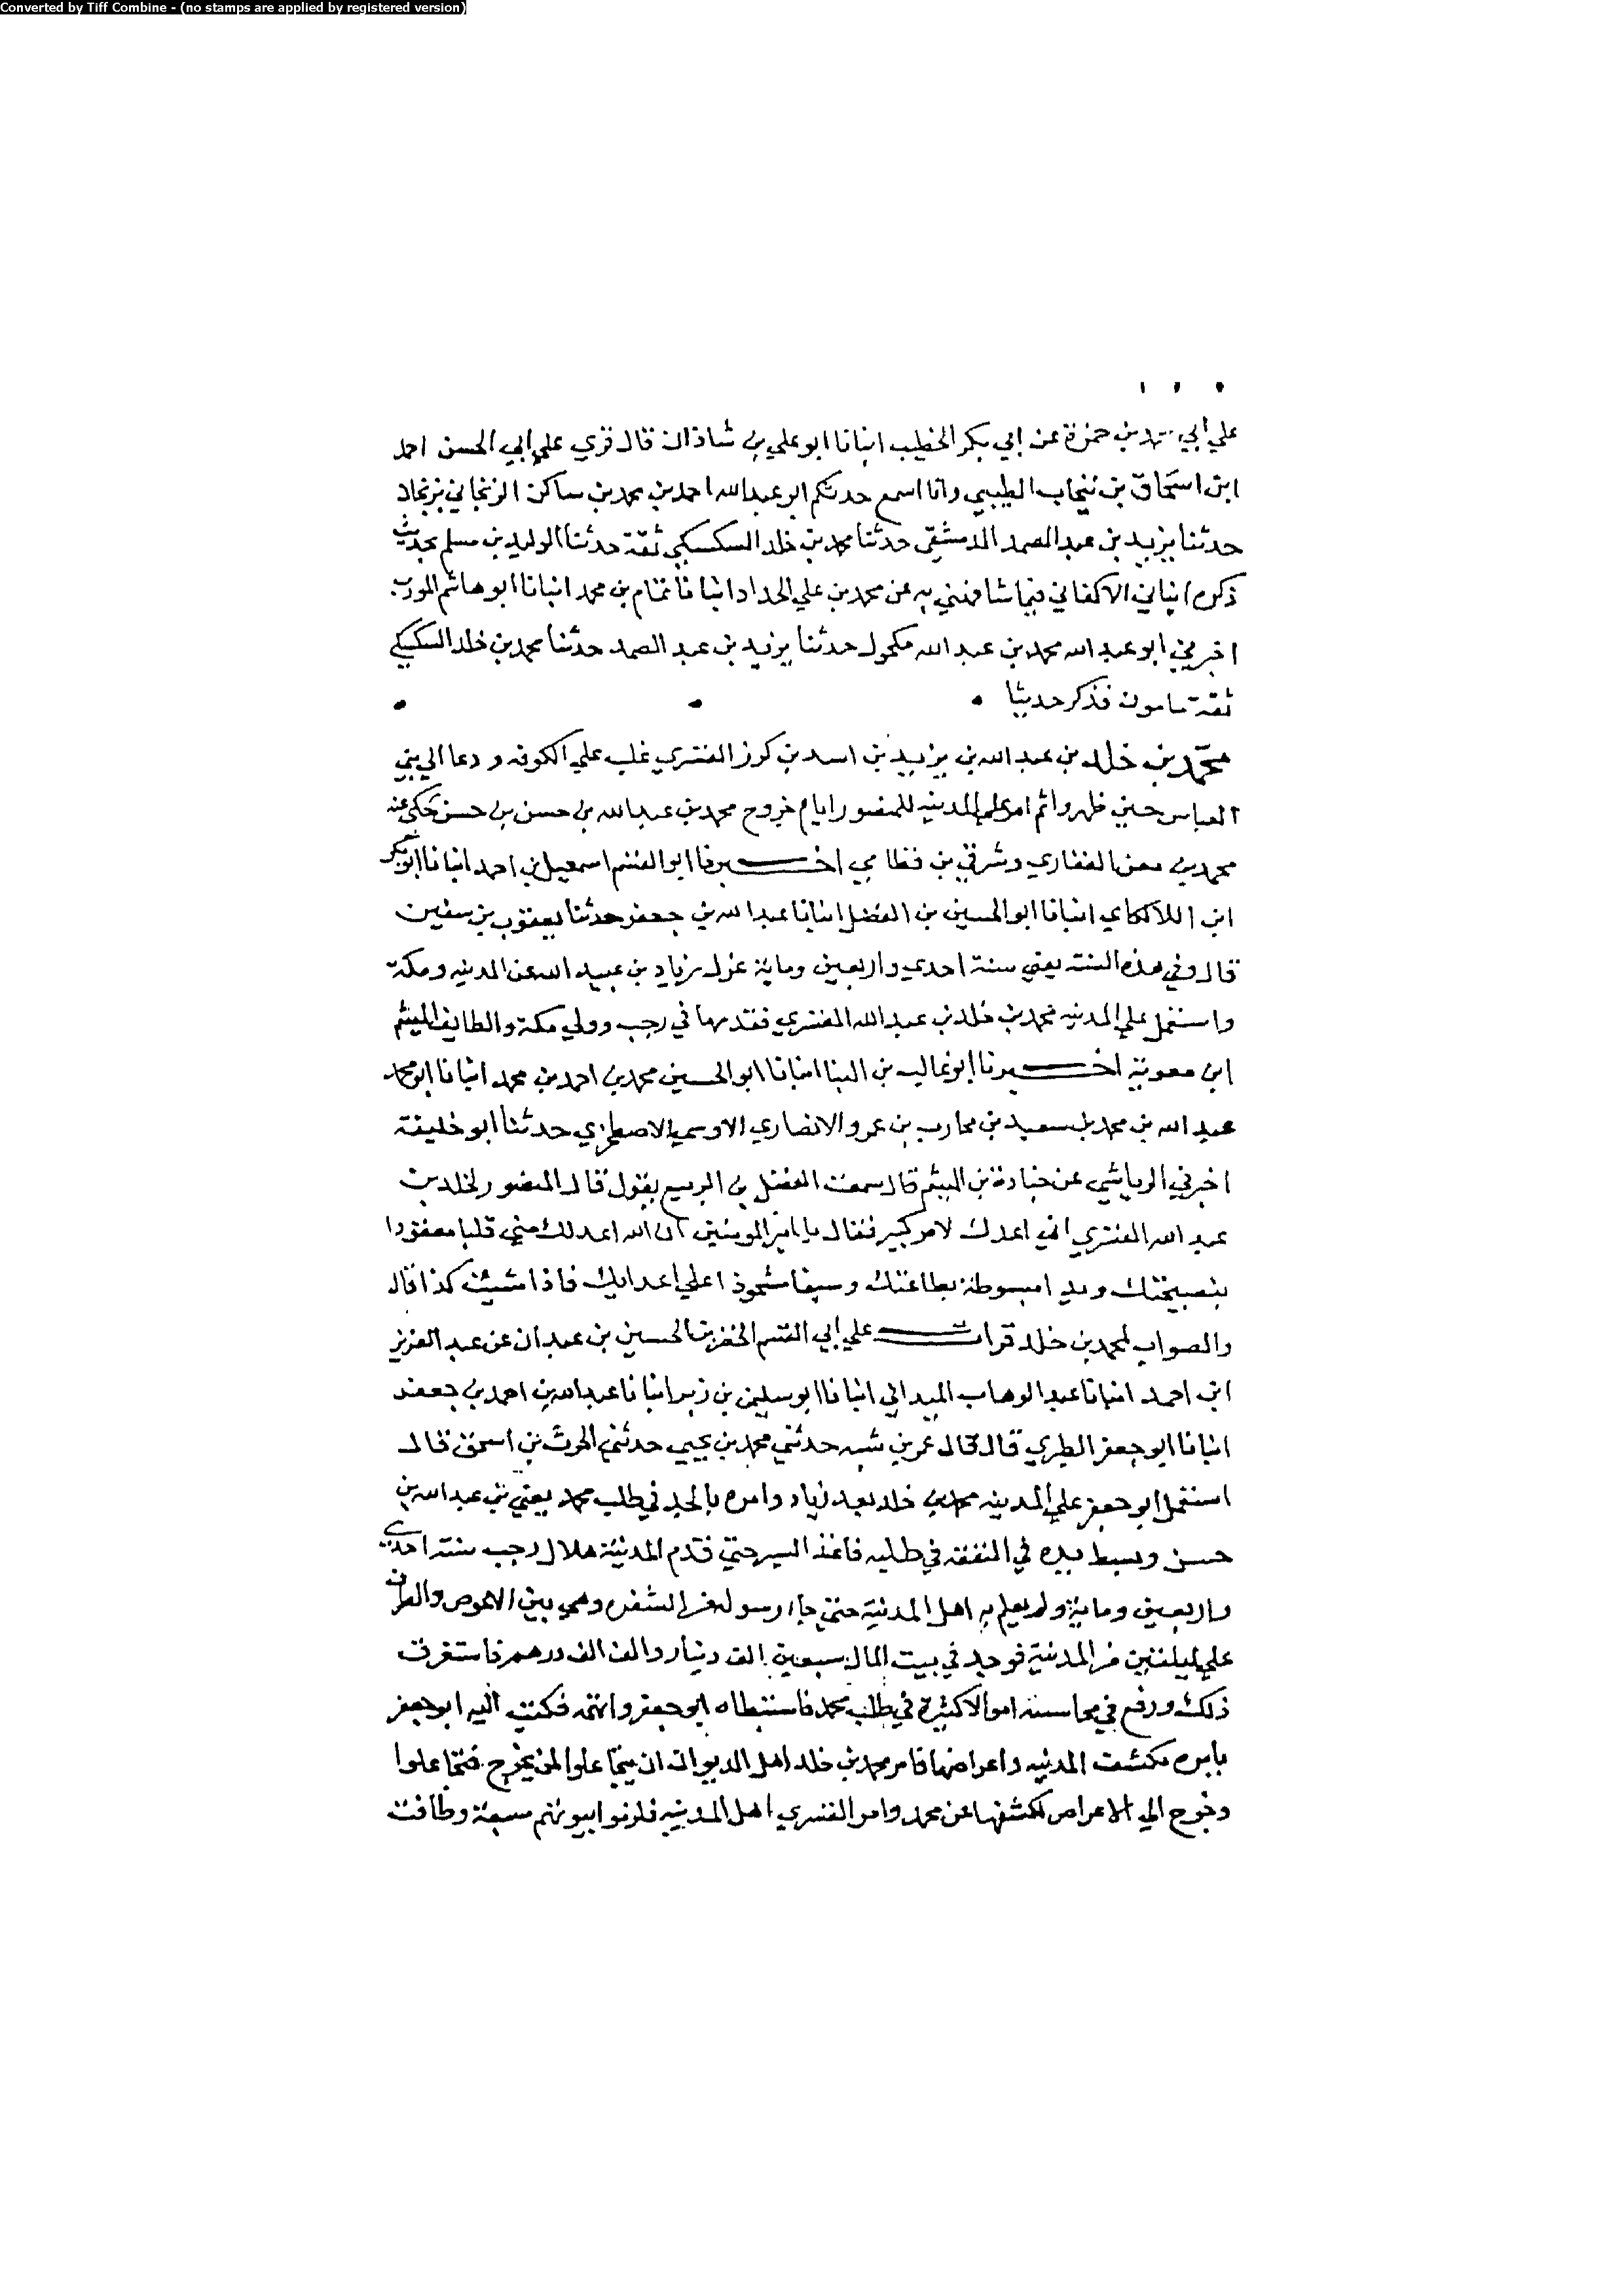 Converted by Tiff Combine - (no stamps are applied by registered version)
علي ابي محمد بن حمزة عن ابي بكر الخطيب انبانا ابو علي بن شاذان قال قري علي ابي الحسن احمد
ابن اسحاق بن نيخاب الطيبي وانا اسمع حدثكم ابو عبد الله احمد بن محمد بن ساكن الزنجاني بزنجان
حدثنا يزيد بن عبد الصمد الدمشقي حدثنا محمد بن خلد السكسكي ثقة حدثنا الوليد بن مسلم بحديث
ذكره انباني الاكفاني فيما شافهني به عن محمد بن علي الحداد انبانا تمام بن محمد انبانا ابو هاشم المودب
اخبرني ابو عبد الله محمد بن عبد الله مكحول حدثنا يزيد بن عبد الصمد حدثنا محمد بن خلد السكسكي
ثقة مامون فذكر حديثا
محمد بن خلد بن عبد الله بن يزيد بن اسد بن كرز القسري غلب علي الكوفه ودعا الي بني
العباس حين ظهروا ثم امر علي المدينه للمنصور ايام خروج محمد بن عبد الله بن حسن بن حسن حكي عنه
محمد بن معن الغفاري وشرقي بن قطامي اخبرنا ابو القسم اسمعيل بن احمد انبانا ابو بكر
ابن اللالكاي انبانا ابو الحسين بن الفضل انبانا عبد الله بن جعفر حدثنا يعقوب بن سفين
قال وفي هذه السنة يعني سنة احدي واربعين وماية عزل زياد بن عبيد الله عن المدينه ومكة
واستعمل علي المدينه محمد بن خلد بن عبد الله القسري فقدمها في رجب وولي مكة والطايف الهيثم
ابن معوية اخبرنا ابو غالب بن البنا انبانا ابو الحسين محمد بن احمد بن محمد انبانا ابو محمد
عبيد الله بن محمد بن سعيد بن محارب بن عمرو الانصاري الاوسي الاصطخري حدثنا ابو خليفة
اخبرني الرياشي عن جنادة بن الهيثم قال سمعت الفضل بن الربيع يقول قال المنصور لخلد بن
عبد الله القسري اني اعدك لامر كبير فقال يا امير المومنين ان الله اعد لك مني قلبا معقودا
بنصيحتك ويدا مبسوطة بطاعتك وسيفا مشحوذا علي اعدايك فاذا شيت كذا قال
والصواب لمحمد بن خلد قرات علي ابي القسم الخضر بن الحسين بن عبدان عن عبد العزيز
ابن احمد انبانا عبد الوهاب الميداني انبانا ابو سليمن بن زبر انبانا عبد الله بن احمد بن جعفر
انبانا ابو جعفر الطبري قال قال عمر بن شبه حدثني محمد بن يحيي حدثني الحرث بن اسحق قال
استعمل ابو جعفر علي المدينه محمد بن خلد بعد زياد وامره بالجد في طلب محمد يعني بن عبد الله بن
حسن وبسط يده في النفقه في طلبه فاغذ السير حتي قدم المدينة هلال رجب سنة احدي
واربعين وماية ولم يعلم به اهل المدينة حتي جا رسوله من الشقره وهي بين الاعوص والطرف
علي ليلتين من المدينة فوجد في بيت المال سبعين الف دينار والف الف درهم فاستغرق
ذلك ورفع في محاسبته اموالا كثيرة في طلب محمد فاستبطاه ابو جعفر واتهمه فكتب اليه ابو جعفر
يامره بكشف المدينه واعراضها فامر محمد بن خلد اهل الديوان ان يتجاعلوا لمن يخرج فتجاعلوا
وخرج الي الاعراض لكشفها عن محمد وامر القسري اهل المدينه فلزموا بيوتهم سبعة وطافت